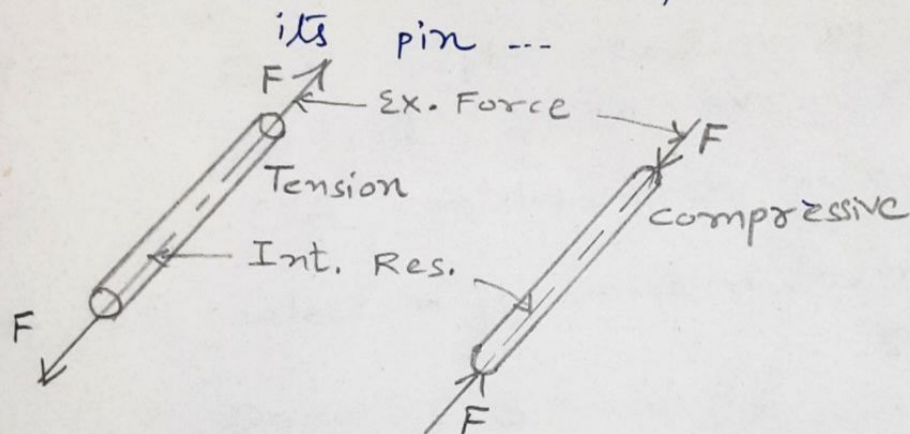 its pin ---
F
Ex. Force
F
Tension
compressive
Int. Res.
F
F